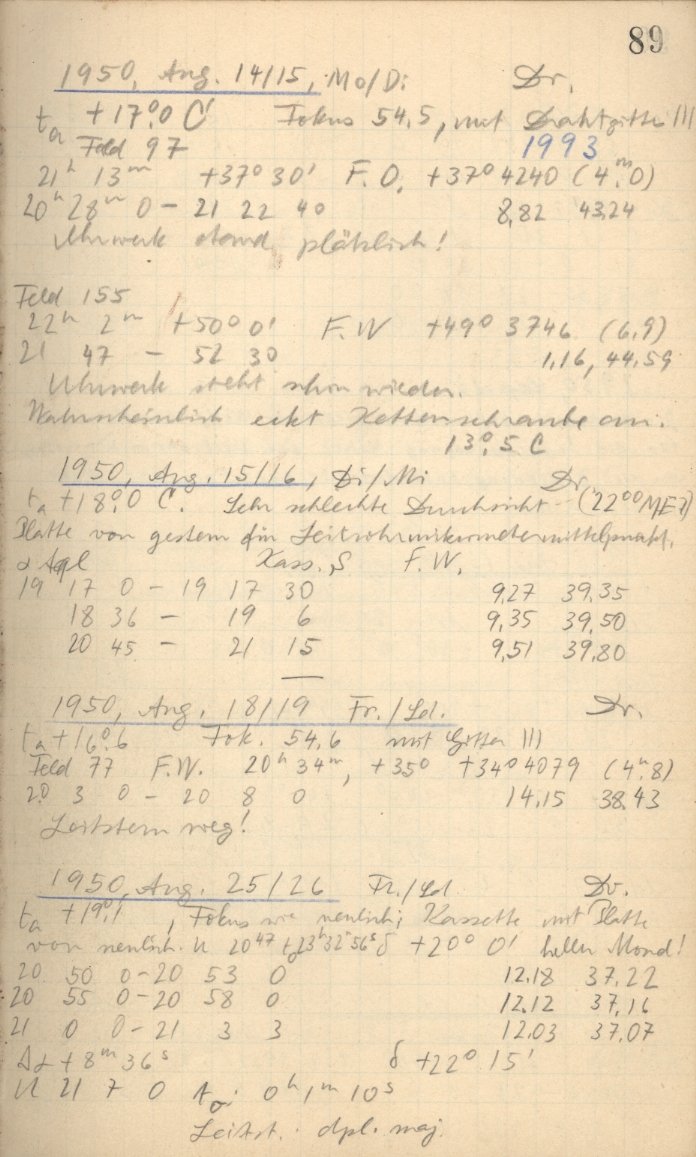 89
1950, Aug. 14/15, Mo/Di Dr.
ta +17°.0 C Fokus 54.5, mit Drahtgitter III
Feld 97 1993
21h 13m +37° 30' F. O. +37° 4240 (4m.0)
20h 28m 0 - 21 22 40 8,82 43,24
Uhrwerk stand plötzlich!
Feld 155
22h 2m +50° 0' F.W +49° 3746 (6,9)
21 47 - 52 30 1,16, 44,59
Uhrwerk steht schon wieder.
Wahrscheinlich eckt Kettenschraube an.
13°.5 C
1950, Aug. 15/16, Di/Mi Dr.
ta +18°.0 C. Sehr schlechte Durchsicht (22 00 MEZ)
Platte von gestern für
Kass. S F.W.
19 17 0 - 19 17 30 9,27 39,35
18 36 - 19 6 9,35 39,50
20 45 - 21 15 9,51 39,80
1950, Aug. 18/19 Fr./Sd. Dr.
ta +16°.6 Fok. 54,6 mit Gitter III
Feld 77 F.W. 20h 34m, +35° +34° 4079 (4m.8)
20 3 0 - 20 8 0 14,15 38,43
Leitstern weg!
1950, Aug. 25/26 Fr./Sd. Dr.
ta +19°.1, Fokus wie neulich; Kassette mit Platte
von neulich. U 20 47 t 23h 32m 56s δ +20° 0' heller Mond!
20 50 0 - 20 53 0 12,18 37,22
20 55 0 - 20 58 0 12,12 37,16
21 0 0 - 21 3 3 12,03 37,07
Δα + 8m 36s δ +22° 15'
U 21 7 0 0h 1m 10s
Leitst. dpl. maj.